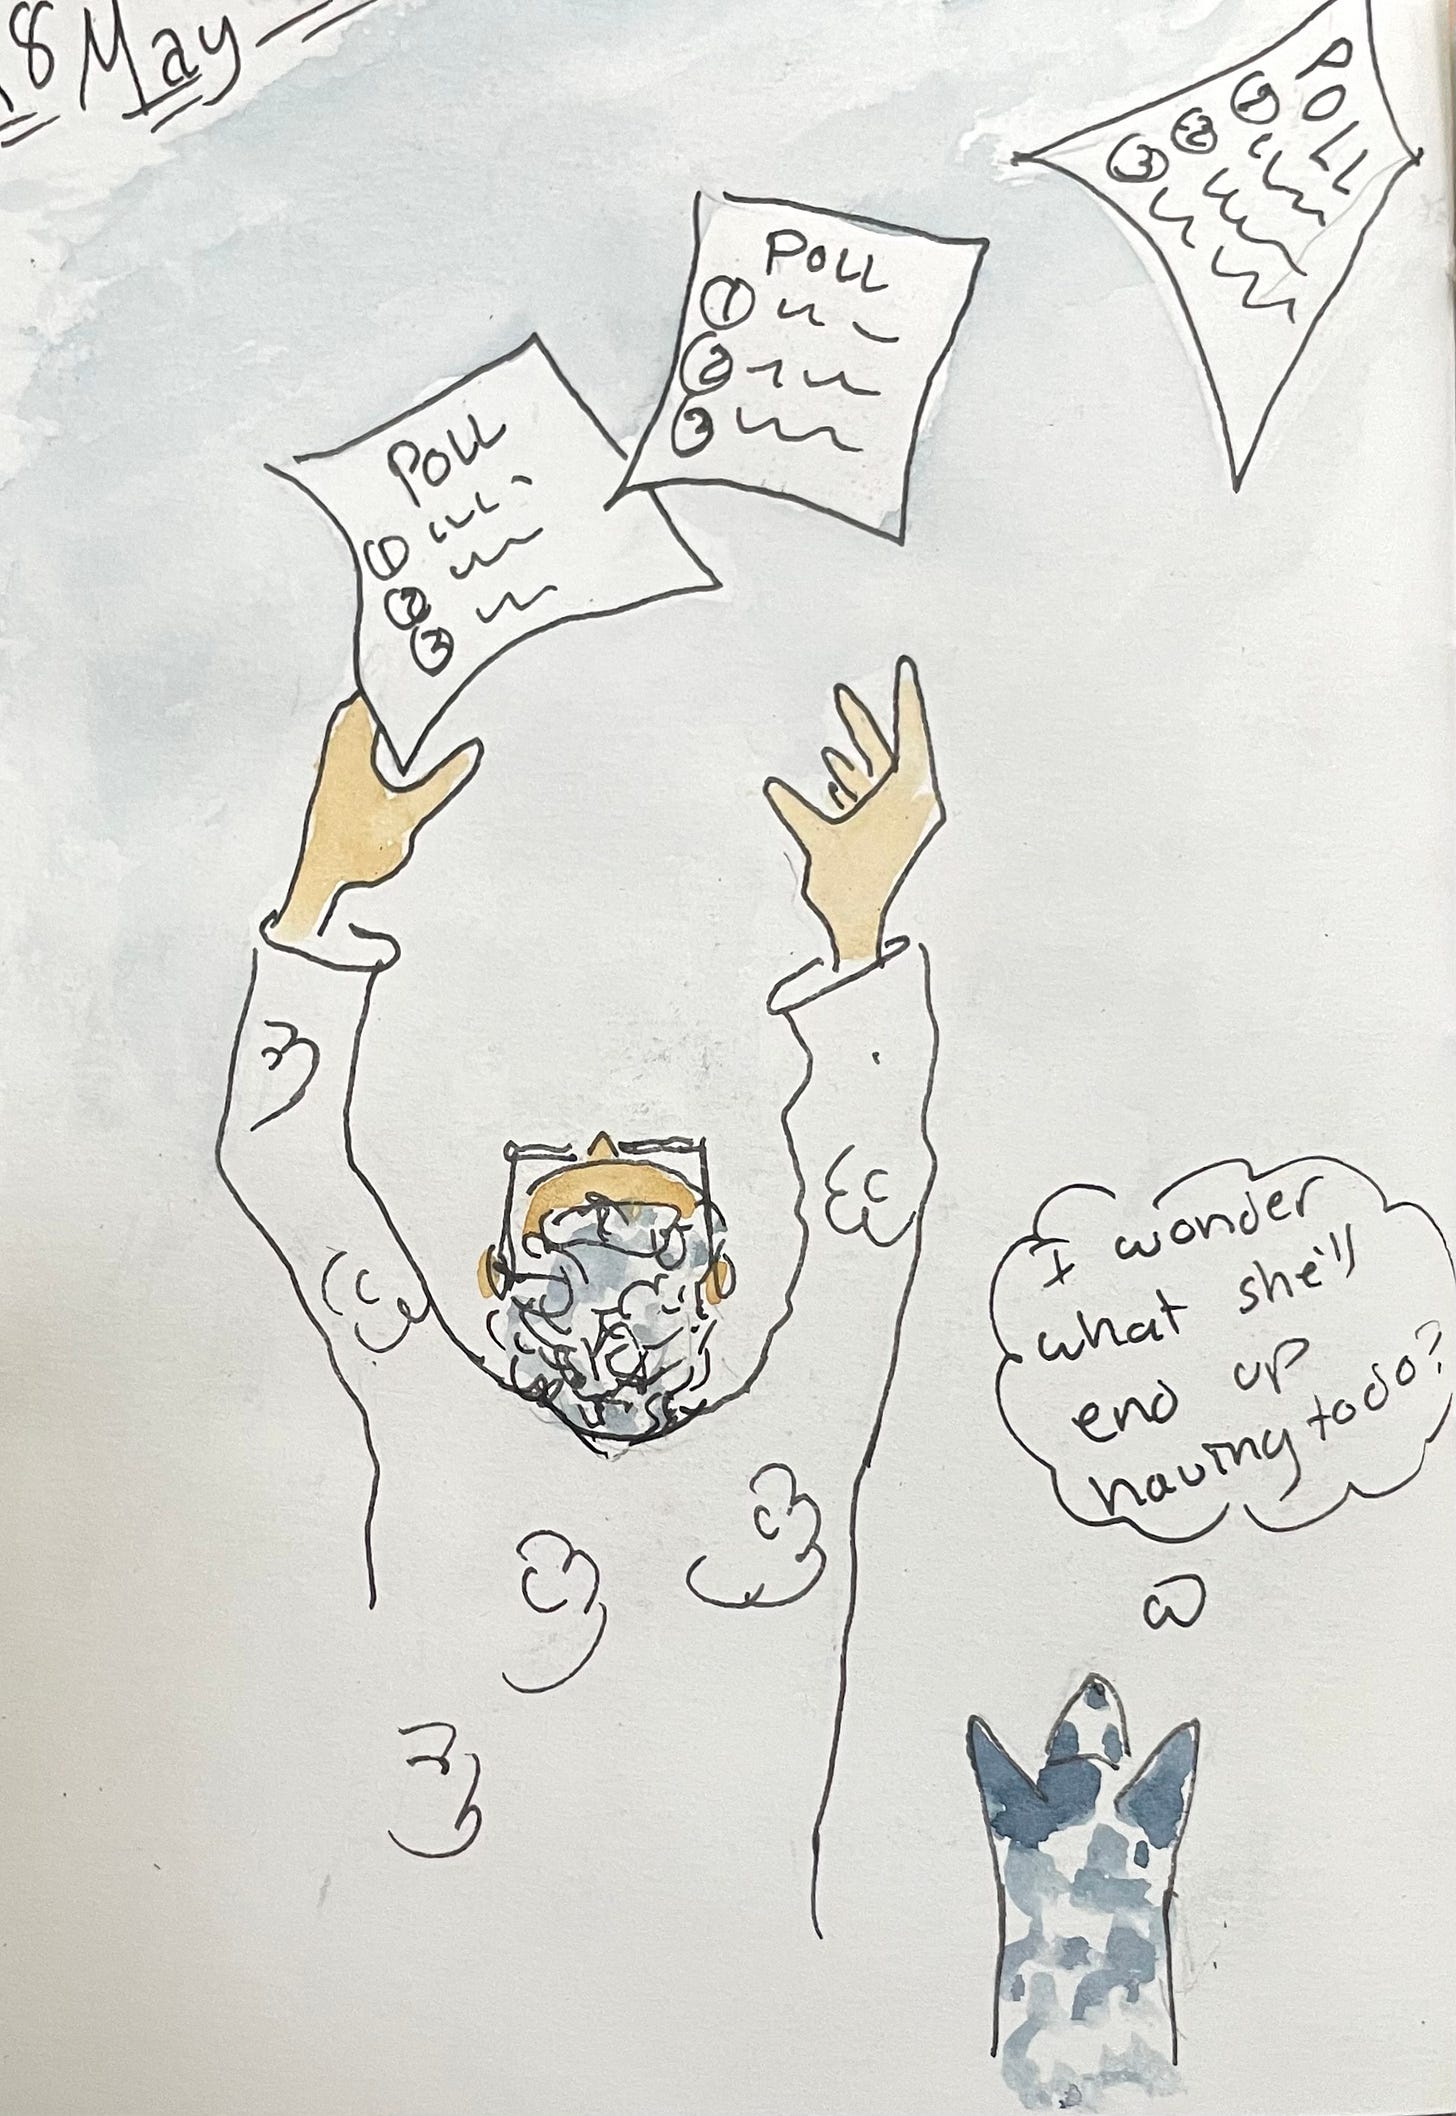 8 May
POLL
①
②
③
POLL
①
②
③
POLL
①
②
③
I wonder
what she'll
end up
having to do?